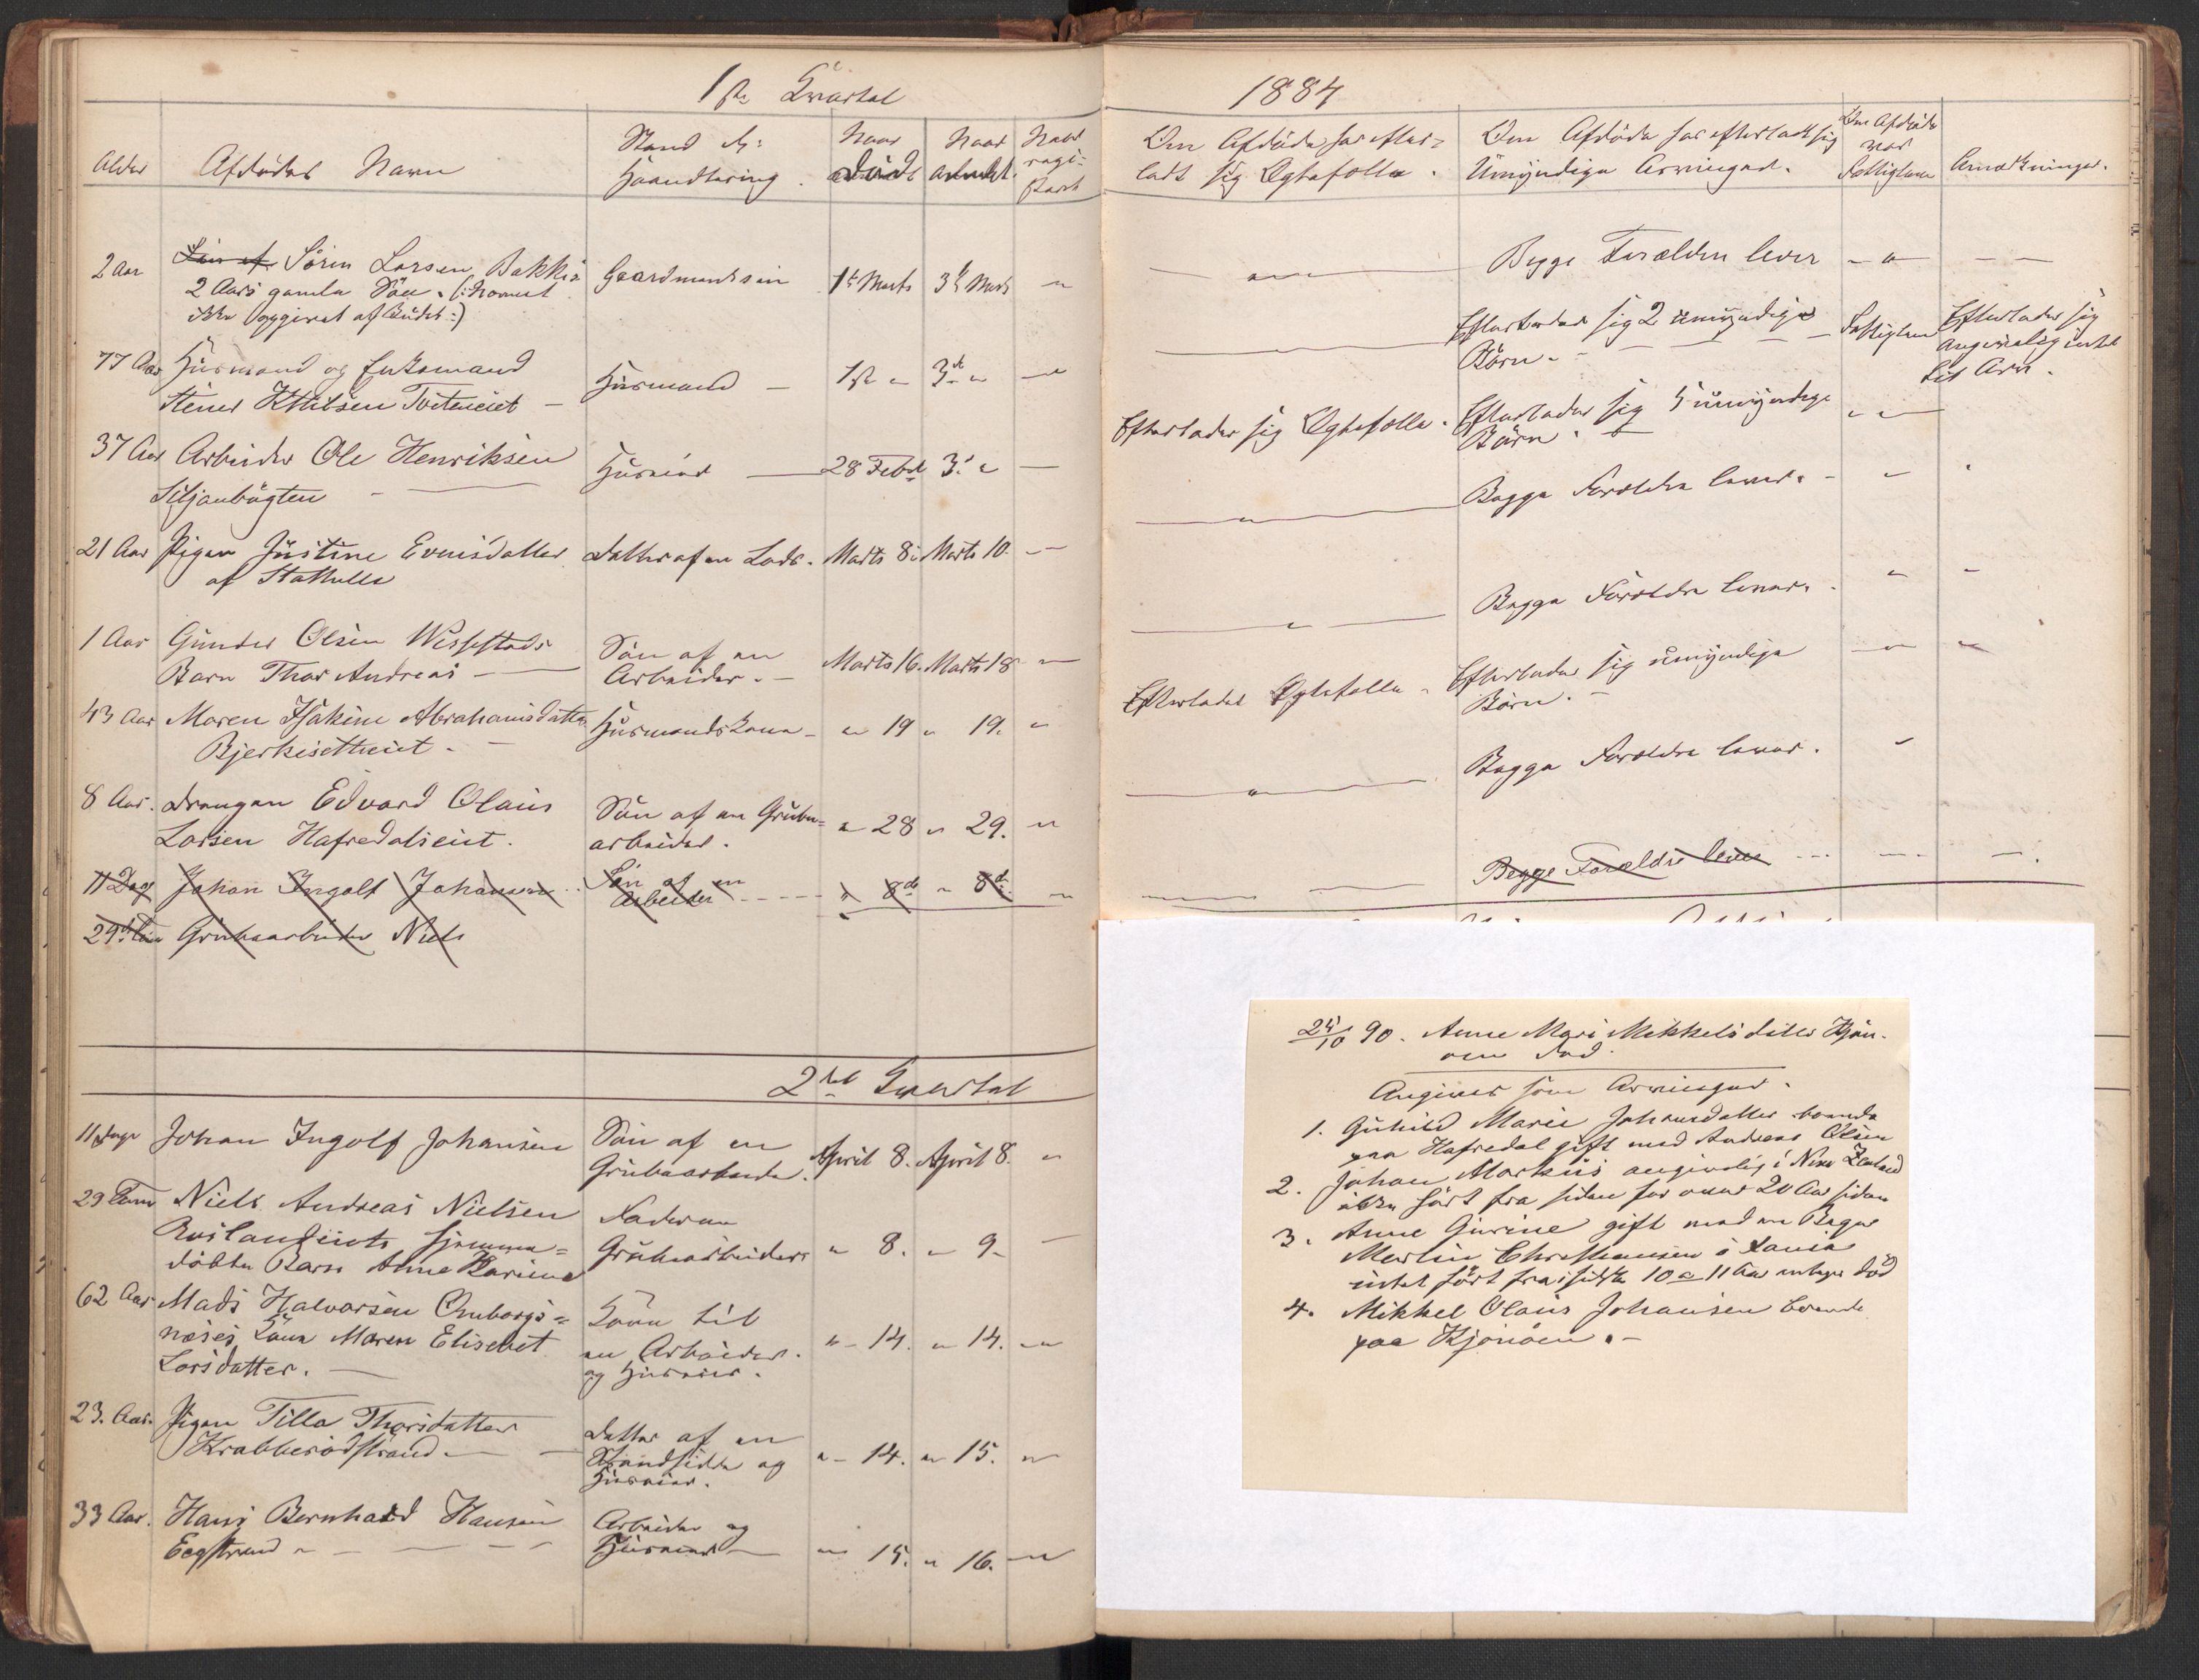 1ste Qvartal
Alder
Afdødes Navn
Stand &:
Haandtering.
Naar
død
Naar
anmeldt.
Naar
regi-
strert
2 Aar
Søn af Sören Larsen Bakkes
2 Aars gamle Søn. (: Navnet
ikke opgivet af Budet :)
Gaardmandssön
1ste Marts
3de Marts
77 Aar
Huusmand og Enkemand
Stener Kittilsen Tveteneiet
Huusmand
1ste
3de
37 Aar
Arbeider Ole Henriksen
Siljanbugten
Huuseier
28 Febr
3de
21 Aar
Pigen Justine Evensdatter
af Stathelle
Datter af en Lods.
Marts 8.
Marts 10.
1 Aar
Gunder Olsen Wissestads
Barn Thor Andreas
Søn af en
Arbeider.
Marts 16.
Marts 18
43 Aar
Maren Isakine Abrahamsdatter
Bjerkiseteiet.
Huusmandskone
19
19.
8 Aar.
Drengen Edvard Olaus
Larsen Hafredalseiet.
Søn af en Grube-
arbeider.
28
29.
11 Dage
Johan Ingolf Johansen
Søn af en
Arbeider
8de
8de
29
Grubearbeider Niels
2det Qvartal
11 Dage
Johan Ingolf Johansen
Søn af en
Grubearbeider.
April 8.
April 8.
29 Timer
Niels Andreas Nielsen
hjemme-
døbte Barn Anne Karine
Faderen
Grubearbeider
8.
9.
62 Aar
Mads Halvorsen
Kone Maren Elisebet
Larsdatter.
Kone til
en Arbeider.
og Huuseier.
14.
14.
23. Aar.
Pigen Tilla Thorsdatter
Krabberødstrand
Datter af en
Strandsidder og
Huuseier.
14.
15.
33 Aar.
Hans Bernhard Hansen
Eegstrand
Arbeider og
Huuseier
15.
16.
1884
Den Afdøde har efter-
ladt sig Ægtefælle.
Den Afdøde har efterladt sig
Umyndige Arvinger.
Den Afdøde
var
Fattiglem
Anmærkninger.
Begge Forældre lever
Efterlader sig 2 umyndige
Børn.
Fattiglem
Efterlader sig
angivelig intet
til Arv.
Efterlader sig Ægtefælle.
Efterlader sig 5 umyndige
Børn.
Begge Forældre lever.
Begge Forældre lever.
Efterlader Ægtefælle
Efterlader sig umyndige
Børn.
Begge Forældre lever.
Begge Forældre lever
25/10 90. Anne Mari Mikkelsdatter Kjøn-
øen død.
Angives som Arvinger.
1. Gunild Marie Johansdatter boende
paa Hafredal gift med Andreas Olsen
2. Johan Markus angivelig i New Zeeland
ikke hørt fra siden for over 20 Aar siden
3. Anne Gurine gift med en Bager
Martin Christiansen i Xania
intet hørt fra i sidste 10 a 11 Aar antages død
4. Mikkel Olaus Johansen boende
paa Kjönöen.